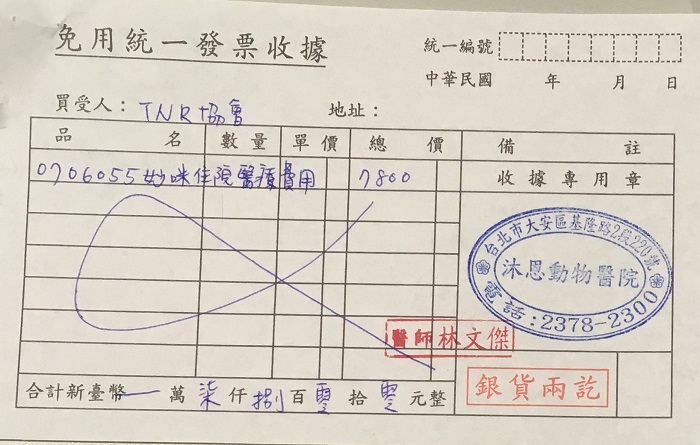 免用統一發票收據
統一編號
中華民國 年 月 日
買受人：TNR協會 地址：
品名 數量 單價 總價 備註
0706055妙咪住院醫療費用 7800 收據專用章
台北市大安區基隆路2段220號
沐恩動物醫院
電話：2378-2300
醫師林文傑
合計新臺幣 萬柒仟捌百零拾零元整
銀貨兩訖